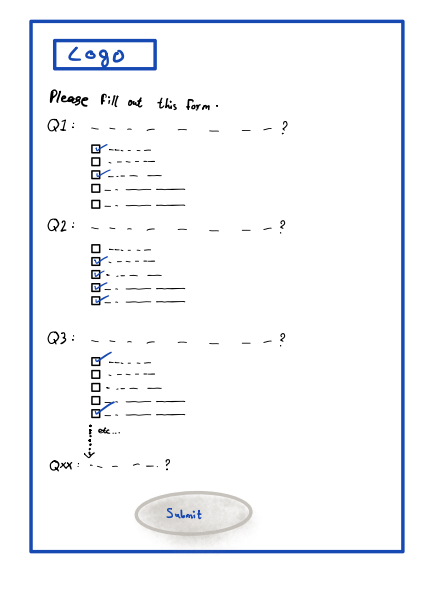 Logo
Please fill out this form.
Q1: _ _ _ _ _ _ _ ?
Q2: _ _ _ _ _ _ _ ?
Q3: _ _ _ _ _ _ _ ?
etc...
Qxx: - - - - ?
Submit